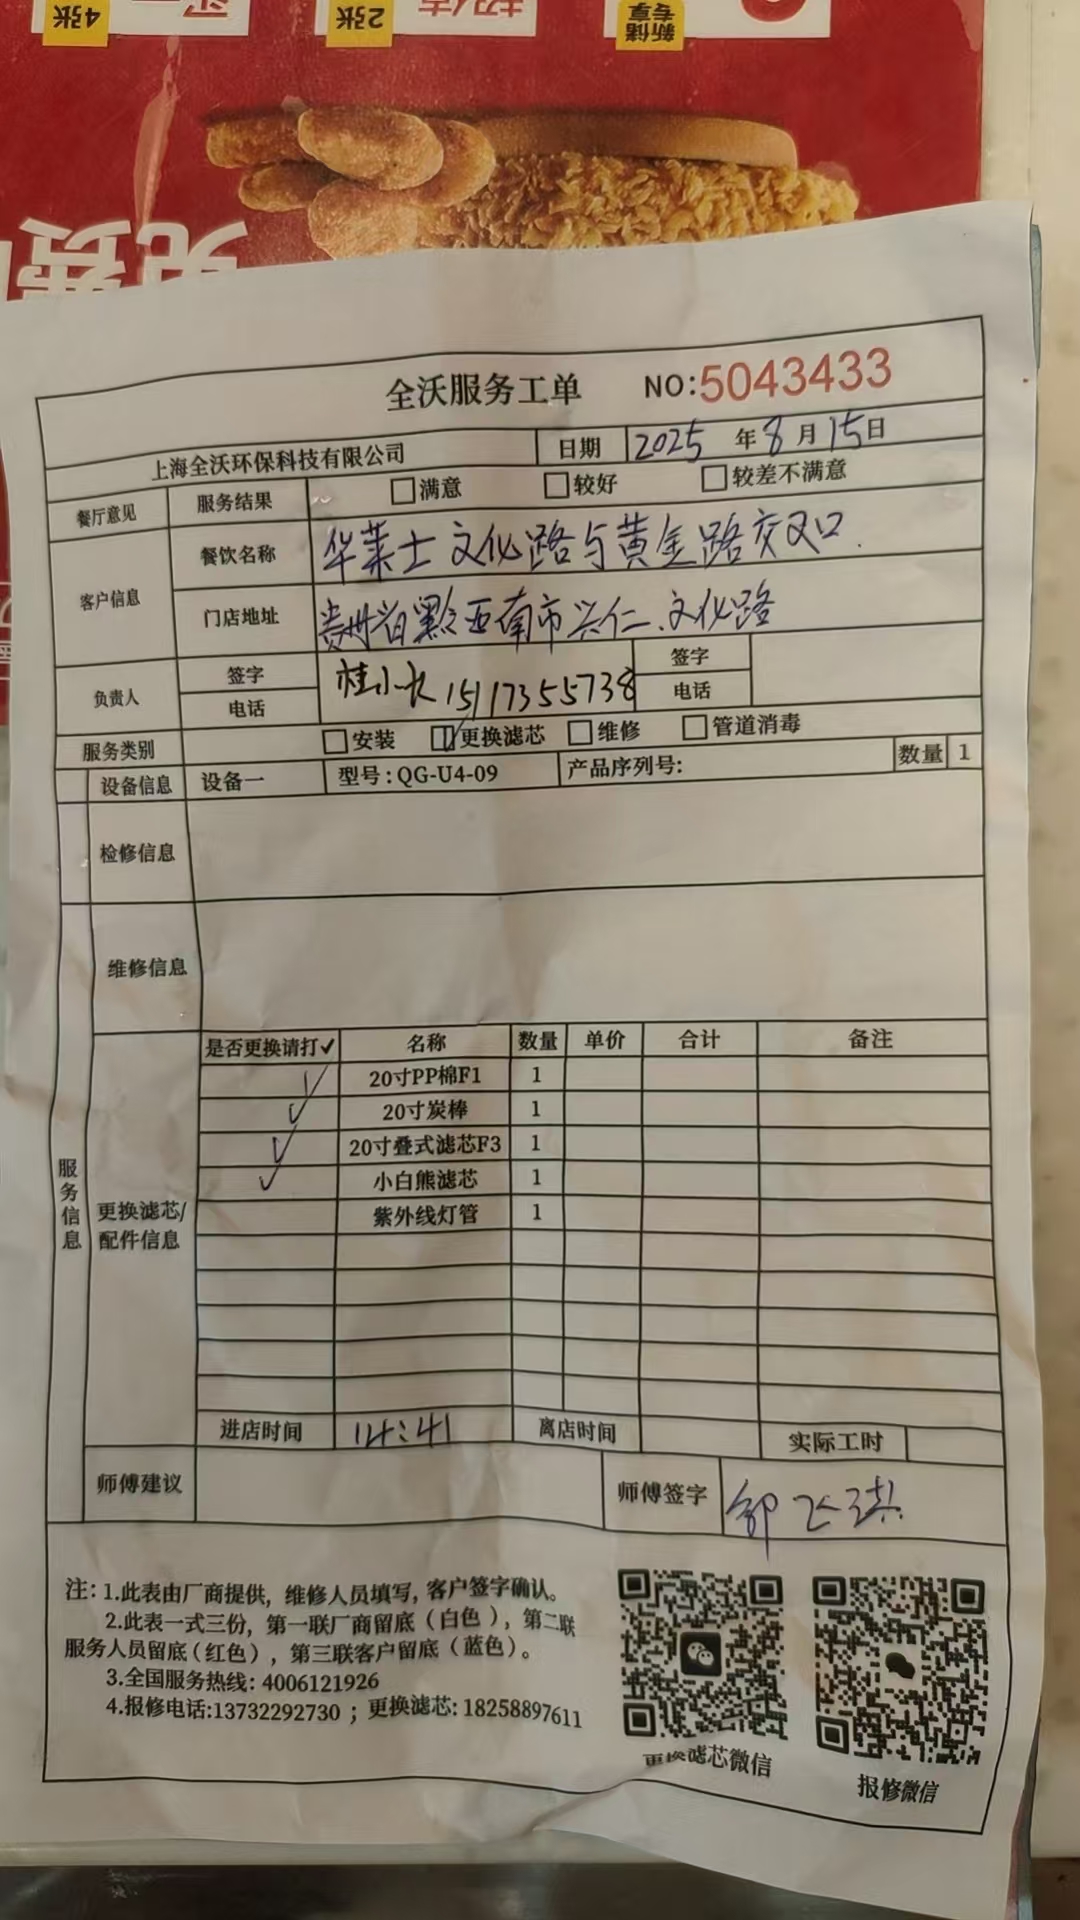 4张
2张
新储
专享
免费
全沃服务工单 NO:5043433
上海全沃环保科技有限公司 日期 2025 年 8 月 15日
餐厅意见 服务结果 □满意 □较好 □较差不满意
客户信息 餐饮名称 华莱士文化路与黄金路交叉口.
门店地址 贵州省黔西南市兴仁.文化路
负责人 签字 桂小长 签字
电话 15117355738 电话
服务类别 □安装 ☑更换滤芯 □维修 □管道消毒
设备信息 设备一 型号:QG-U4-09 产品序列号: 数量 1
检修信息
维修信息
服务信息
更换滤芯/
配件信息
是否更换请打✓ 名称 数量 单价 合计 备注
✓ 20寸PP棉F1 1
✓ 20寸炭棒 1
✓ 20寸叠式滤芯F3 1
✓ 小白熊滤芯 1
紫外线灯管 1
进店时间 14:41 离店时间 实际工时
师傅建议 师傅签字
注: 1.此表由厂商提供, 维修人员填写, 客户签字确认。
2.此表一式三份, 第一联厂商留底 (白色), 第二联
服务人员留底 (红色), 第三联客户留底 (蓝色)。
3.全国服务热线: 4006121926
4.报修电话:13732292730 ; 更换滤芯: 18258897611
更换滤芯微信
报修微信